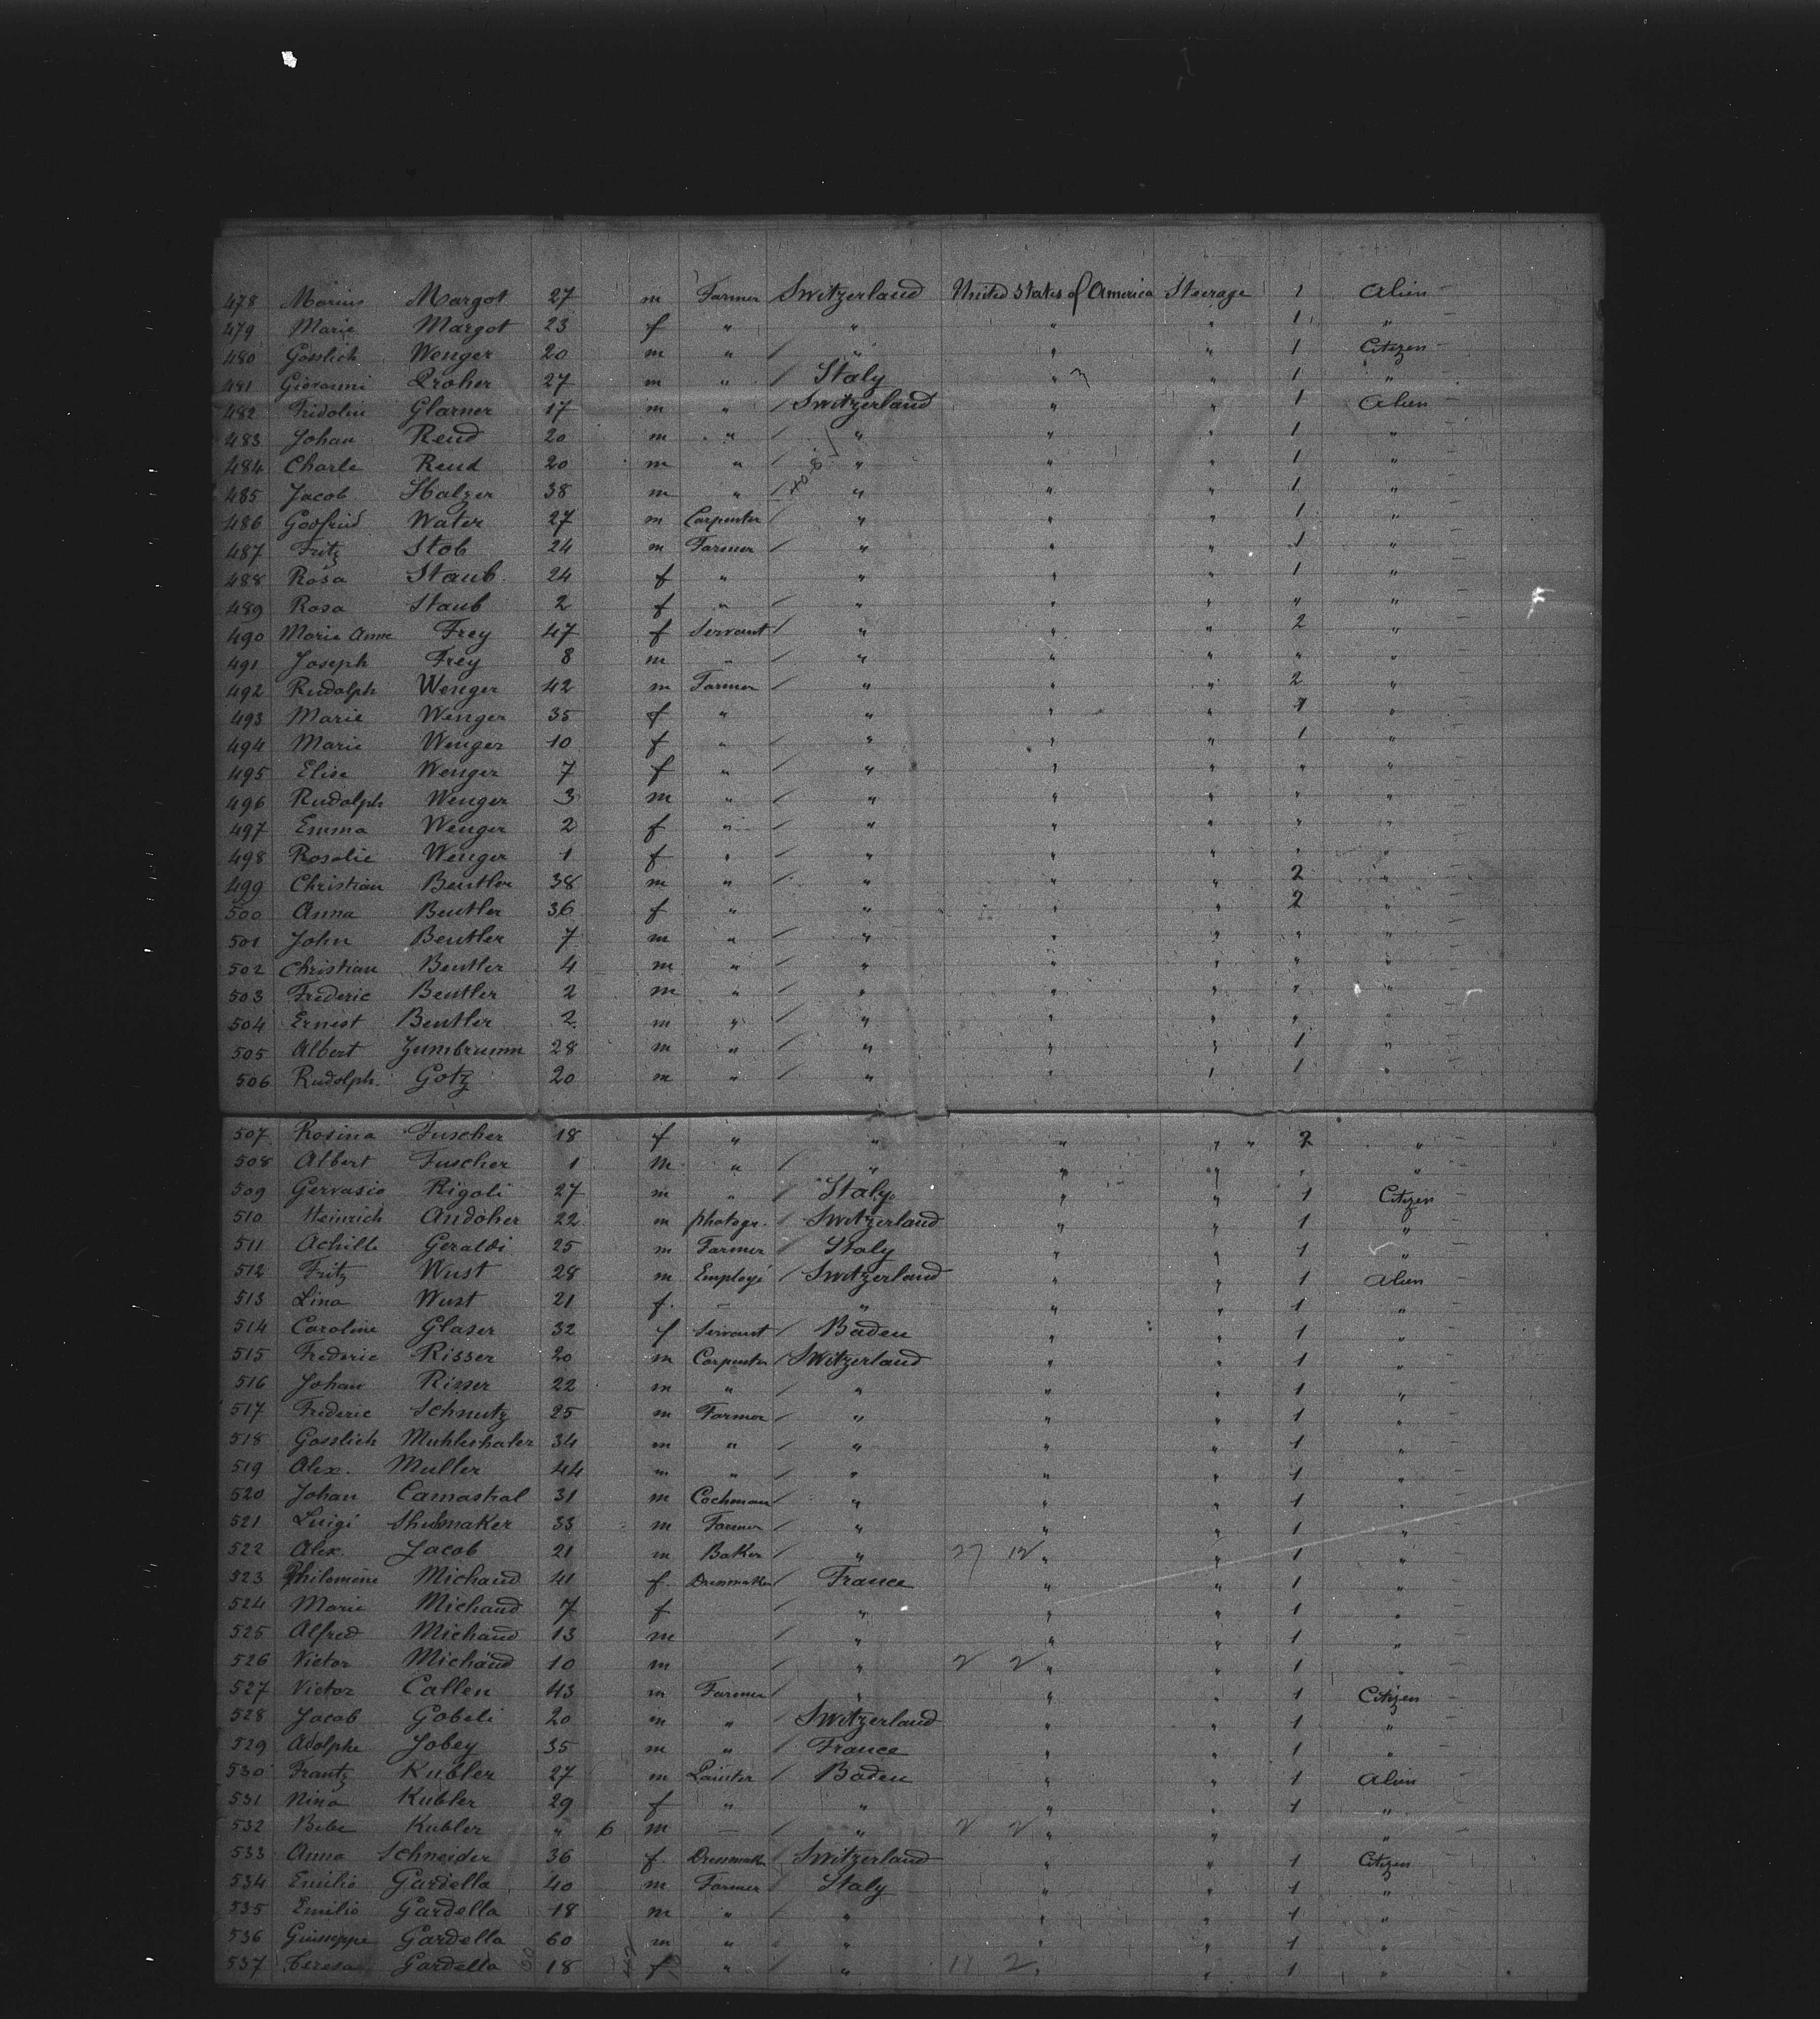 478 Marius Margot 27 m Farmer Switzerland United States of America Steerage 1 Alien -
479 Marie Margot 23 f " " " " 1 " -
480 Gosslich Wenger 20 m " / " " " 1 Citizen -
481 Giovanni Proher 27 m " / Italy " " 1 " -
482 Fridolin Glarner 17 m " / Switzerland " " 1 Alien -
483 Johan Rend 20 m " / " " " 1 " -
484 Charle Rend 20 m " / " " " 1 " -
485 Jacob 38 m " / " " " 1 " -
486 Godfried Water 27 m Carpenter / " " " 1 " -
487 Fritz Stob 24 m Farmer / " " " 1 " -
488 Rosa Staub 24 f " " " " 1 " -
489 Rosa Staub 2 f " / " " " " " -
490 Marie Anne Frey 47 f Servant / " " " 2 " -
491 Joseph Frey 8 m " / " " " " " -
492 Rudolph Wenger 42 m Farmer / " " " 2 " -
493 Marie Wenger 35 f " " " " 1 " -
494 Marie Wenger 10 f " / " " " 1 " -
495 Elise Wenger 7 f " / " " " " " -
496 Rudolph Wenger 3 m " / " " " " " -
497 Emma Wenger 2 f " / " " " " " -
498 Rosalie Wenger 1 f " / " " " " " -
499 Christian Beutler 38 m " / " " " 2 " -
500 Anna Beutler 36 f " " " " 2 " -
501 John Beutler 7 m " / " " " " " -
502 Christian Beutler 4 m " / " " " " " -
503 Frederic Beutler 2 m " / " " " " " -
504 Ernest Beutler 2 m " / " " " " " -
505 Albert Zumbrunn 28 m " / " " " 1 " -
506 Rudolph Gotz 20 m " / " " " 1 " -
507 Rosina Fuscher 18 f " " " " " 2 " -
508 Albert Fuscher 1 m " / " " " " " -
509 Gervasio Rigoli 27 m " / Italy " " 1 Citizen -
510 Heinrich Andoher 22 m photogr. / Switzerland " " 1 " -
511 Achille Geraldi 25 m Farmer / Italy " " 1 " -
512 Fritz Wust 28 m Employé / Switzerland " " 1 Alien -
513 Lina Wust 21 f. - " " " 1 " -
514 Caroline Glaser 32 f Servant / Baden " " 1 " -
515 Frederic Risser 20 m Carpenter / Switzerland " " 1 " -
516 Johan Risser 22 m " / " " " 1 " -
517 Frederic Schnutz 25 m Farmer / " " " 1 " -
518 Gosslich Muhlethaler 34 m " / " " " 1 " -
519 Alex. Muller 44 m " / " " " 1 " -
520 Johan Camastral 31 m Cochman / " " " 1 " -
521 Luigi Shumaker 33 m Farmer / " " " 1 " -
522 Alex. Jacob 21 m Baker / " 27 12 " " 1 " -
523 Philomène Michaud 41 f Dressmaker / France " " 1 " -
524 Marie Michaud 7 f / " " " 1 " -
525 Alfred Michaud 13 m / " " " 1 " -
526 Victor Michaud 10 m / " 2 2 " " 1 " -
527 Victor Callen 43 m Farmer / " " " 1 Citizen -
528 Jacob Gobeli 20 m " / Switzerland " " 1 " -
529 Adolphe Jobey 35 m " / France " " 1 " -
530 Frantz Kubler 27 m Painter / Baden " " 1 Alien -
531 Nina Kubler 29 f " " " " 1 " -
532 Bebe Kubler " 6 m - / " 2 2 " " " -
533 Anna Schneider 36 f. Dressmak / Switzerland " " 1 Citizen -
534 Emilio Gardella 40 m Farmer / Italy " " 1 " -
535 Emilio Gardella 18 m " / " " " 1 " -
536 Giuseppe Gardella 60 m " / " " " 1 " -
537 Teresa Gardella 18 f " / " 11 2 " " 1 " -